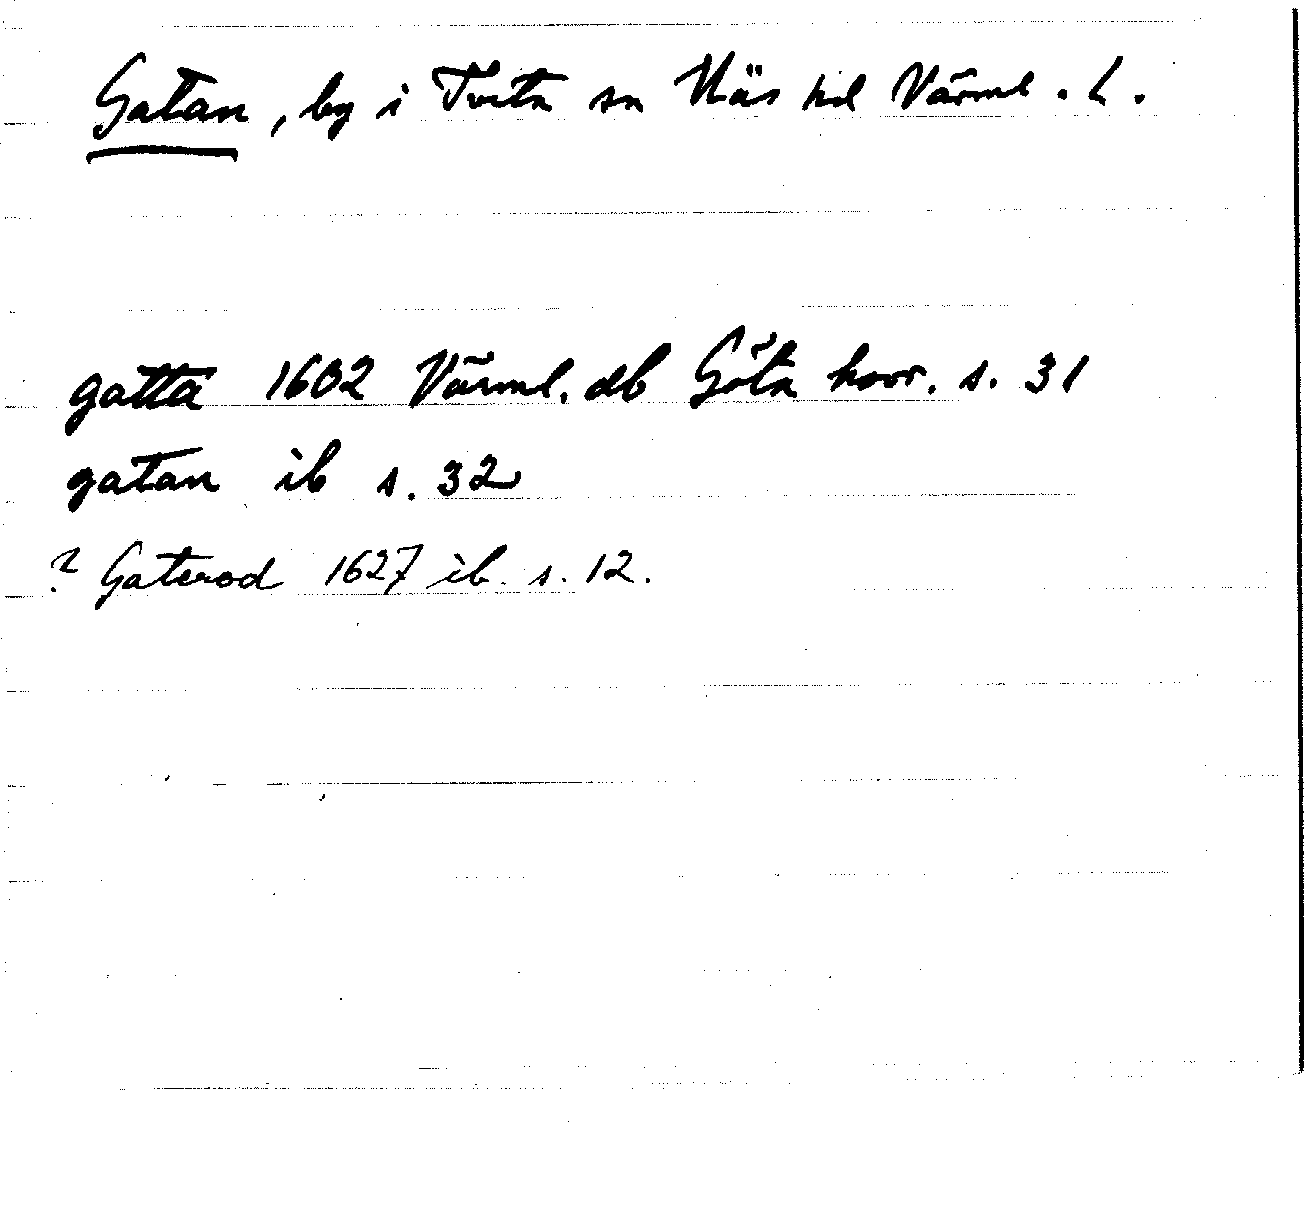 Gatan, by i Tveta sn Näs hd Värml. L.
gatta 1602 Värml. db Göta hovr. s. 31
gatan ib s. 32
? Gaterod 1627 ib. s. 12.